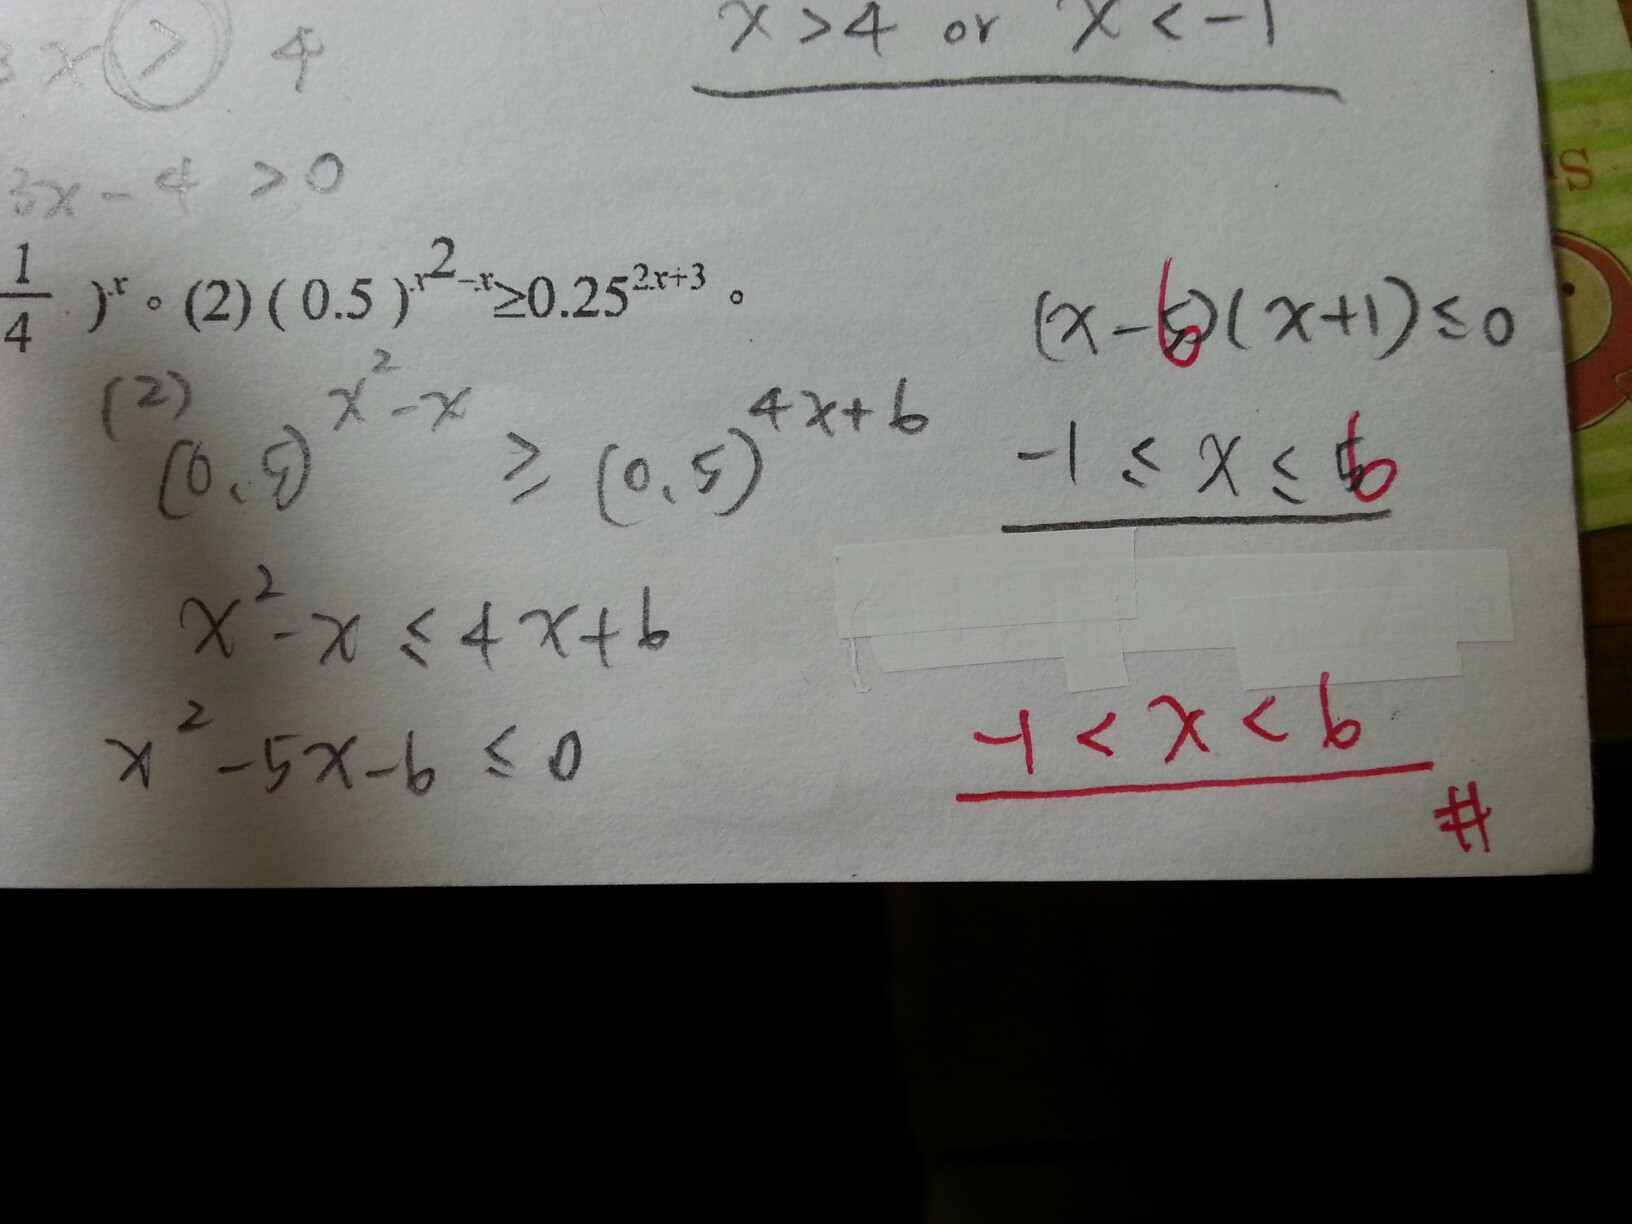 3x > 4
x > 4 or x < -1
3x - 4 > 0
1/4 )^x。(2) ( 0.5 )^(x^2-x) ≥0.25^(2x+3)。
(2)
(0.5)^(x^2-x) ≥ (0.5)^(4x+6)
x^2 - x ≤ 4x+6
x^2 - 5x - 6 ≤ 0
(x - 6)(x+1) ≤ 0
-1 ≤ x ≤ 6
-1 < x < 6
#
S